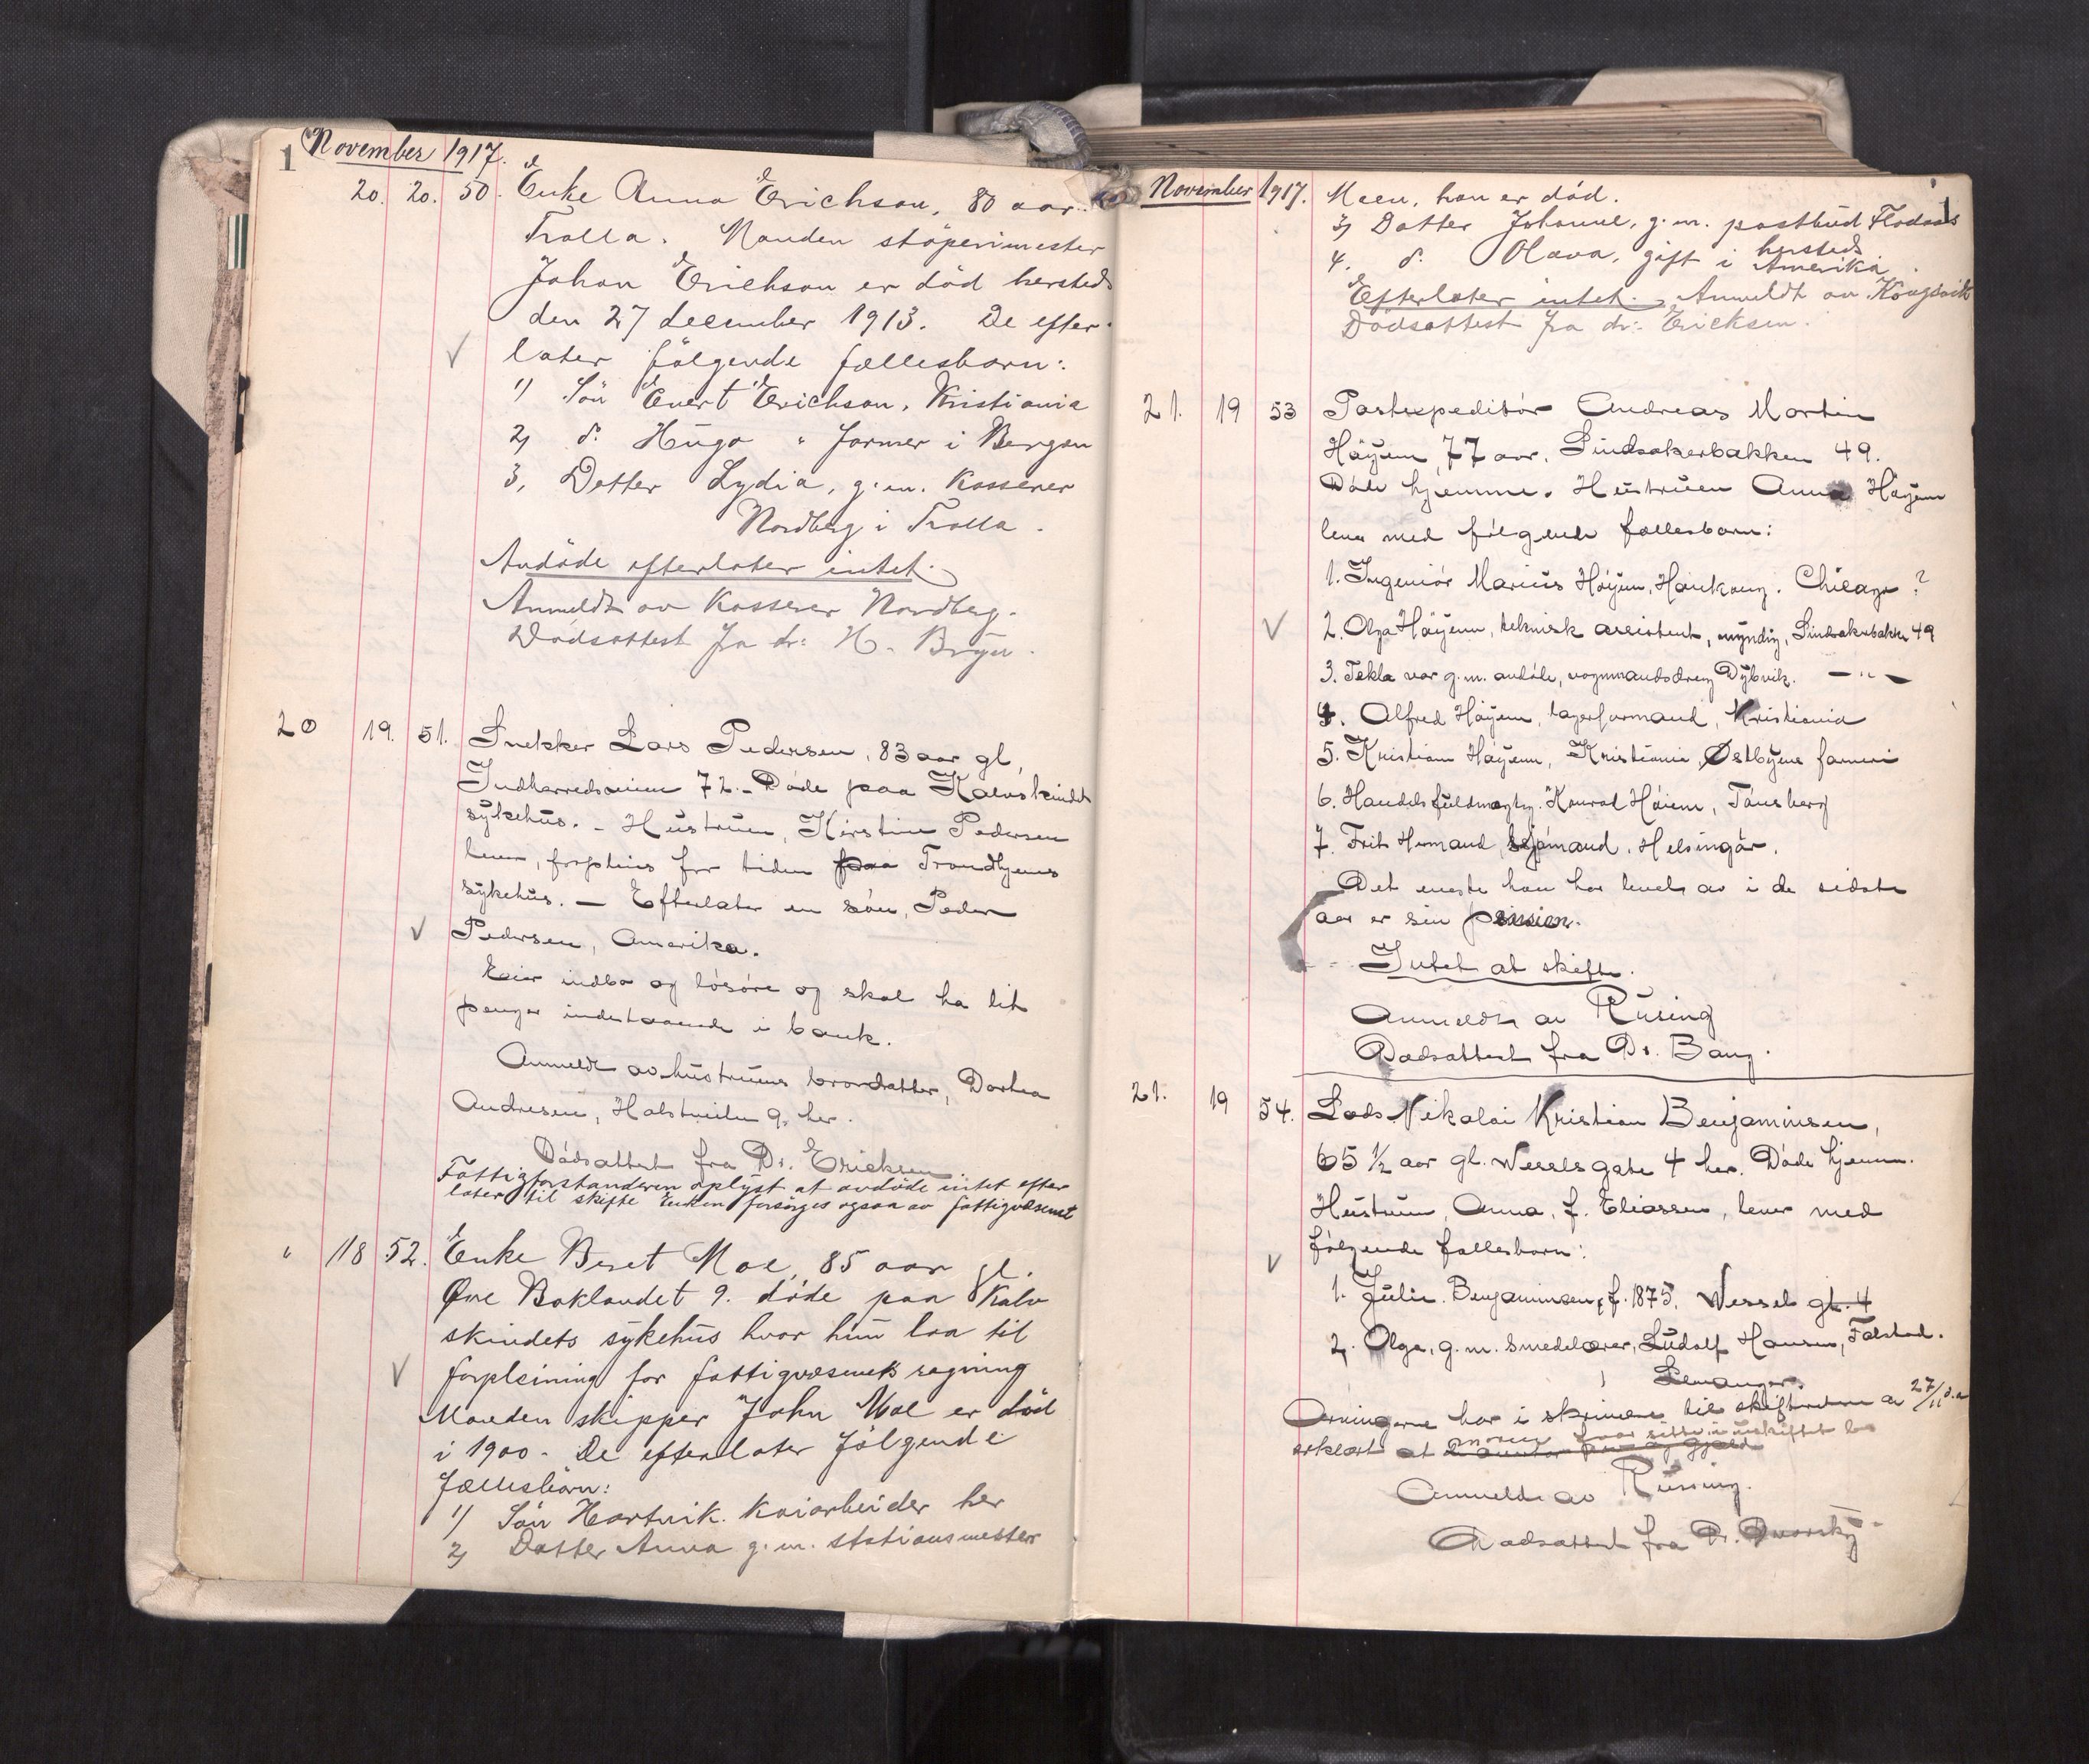 1
November 1917.
20. 20. 50. Enke Anna Erichson, 80 aar.
Trolla. Manden støperimester
Johan Erichson er død hersteds
den 27 december 1913. De efter-
later følgende fællesbarn:
1) Søn Evert Erichson, Kristiania
2) d: Hugo " farmer i Bergen
3, Datter Lydia, g.m. Kasserer
Nordberg i Trolla.
Avdøde efterlater intet.
Anmeldt av Kasserer Nordberg.
Dødsattest fra dr: H. Bryn.
20 19. 51. Snekker Lars Pedersen, 83 aar gl,
Indherredsveien 72. - Døde paa Kalvskindets
sykehus. - Hustruen, Kirstine Pedersen
lever, forpleies for tiden paa Trondhjems
sykehus. - Efterlater en søn, Peder
Pedersen, Amerika.
Eier indbo og løsøre og skal ha lit
penger indestaaende i bank.
Anmeldt av hustruens brordatter, Dorthea
Andresen, 9, her.
Dødsattest fra Dr. Ericksen
Fattigforstanderen oplyst at avdøde intet efter
later til skifte Enken forsørges ogsaa av fattigvæsenet
" 18 52. Enke Beret Moe, 85 aar gl.
Øvre Baklandet 9. døde paa Kalv
skindets sykehus hvor hun laa til
forpleining for fattigvæsenets regning
Manden skipper John Moe er død
i 1900 - De efterlater følgende
fællesbørn:
1) Søn Hartvik. Kaiarbeider her
2) Datter Anna g.m. stationsmester
1
November 1917. Meen, han er død.
3) Datter Johanne, g.m. postbud Flodaas
hersteds
4. d: Olava, gift i Amerika.
Efterlater intet. Anmeldt av Kongsvik
Dødsattest fra dr: Ericksen.
21. 19 53 Postexpeditør Andreas Martin
Høyem, 77 aar, Lindsakerbakken 49.
Døde hjemme. Hustruen Anna Høyem
lever med følgende fællesbarn:
1. Ingeniør Marius Høyem, Hankong. Chicago?
2. Olga Høyem, teknisk assistent, myndig, Lindsakerbakken 49
3. Tekla var g.m. avdøde, vognmandsdreng Dybvik. — " —
4. Alfred Høyem, lagerformand, Kristiania
5. Kristian Høyem, Kristiania, Østbyens farveri
6. Handelsfuldmægtig. Konrad Høiem, Tønsberg
7. Frits Hermand, sjømand. Helsingør.
Det eneste han har levet av i de sidste
aar er sin pension.
Intet at skifte.
Anmeldt av Rusing
Dødsattest fra Dr. Bang.
21. 19 54. Lods Nikolai Kristian Benjaminsen,
65 ½ aar gl. Wessels gate 4 her. Døde hjemme.
Hustruen, Anna, f. Eliassen, lever med
følgende fællesbarn:
1. Julie Benjaminsen, f. 1875, Wessels gt. 4
2. Olga, g.m. smedelærer, Ludolf Hansen, Falstad.
Levanger.
Arvingerne har i skrivelse til skifteretten av 27/11 d.a
erklært at moren faar sitte i uskiftet bo
Anmeldt av Rusing.
Dødsattest fra Dr. Dvorsky